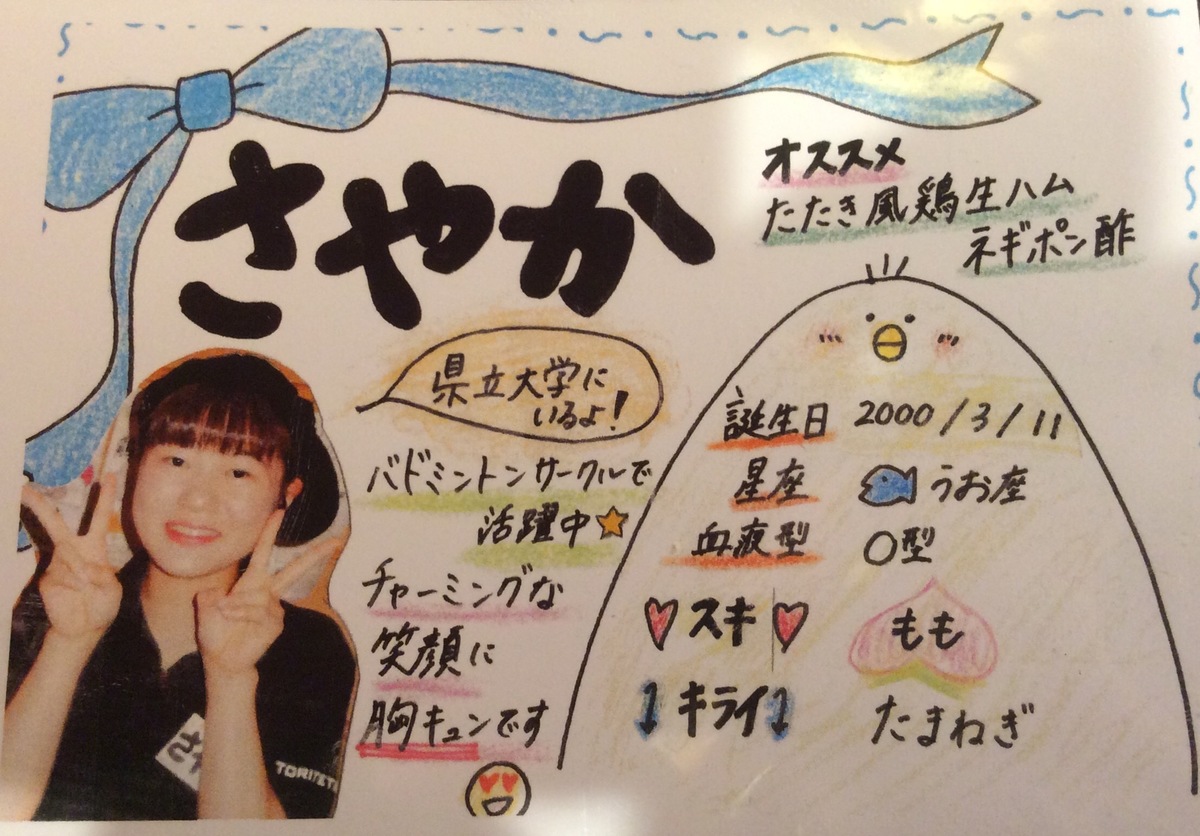 さやか
オススメ
たたき風鶏生ハム
ネギポン酢
県立大学に
いるよ!
バドミントンサークルで
活躍中
チャーミングな
笑顔に
胸キュンです
誕生日 2000/3/11
星座 うお座
血液型 O型
スキ もも
キライ たまねぎ